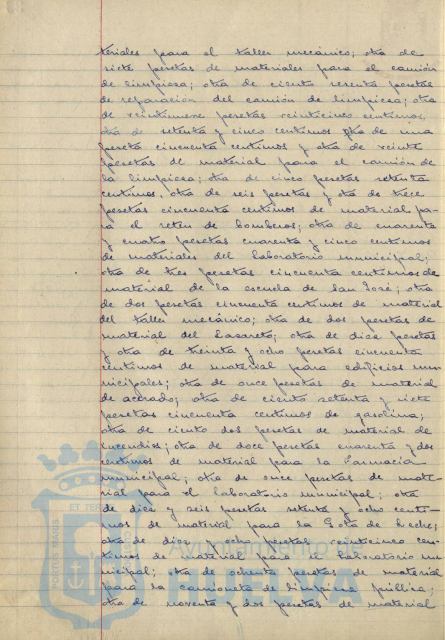 teriales para el taller mecánico; otra de
siete pesetas de materiales para el camión
de limpiesa; otra de ciento sesenta pesetas
de reparacion del camión de limpiesa; otra
de veintinueve pesetas veinticinco centimos,
otra de setenta y cinco centimos otra de una
peseta cincuenta centimos y otra de veinte
pesetas de material para el camión de
la limpiesa; otra de cinco pesetas setenta
centimos, otra de seis pesetas y otra de trece
pesetas cincuenta centimos de material pa-
ra el reten de bomberos; otra de cuarenta
y cuatro pesetas cuarenta y cinco centimos
de materiales del laboratorio municipal;
otra de tres pesetas cincuenta centimos de
material de la escuela de San José; otra
de dos pesetas cincuenta centimos de material
del taller mecánico; otra de dos pesetas de
material del Lasareto; otra de dice pesetas
y otra de treinta y ocho pesetas cincuenta
centimos de material para edificios mu-
nicipales; otra de once pesetas de material
de acerado; otra de ciento setenta y siete
pesetas cincuenta centimos de gasolina;
otra de ciento dos pesetas de material de
incendios; otra de doce pesetas cuarenta y dos
centimos de material para la Farmacia
municipal; otra de once pesetas de mate-
rial para el laboratorio municipal; otra
de dice y seis pesetas setenta y ocho centi-
mos de material para la Gota de Leche;
otra de dice y ocho pesetas veinticinco cen-
timos de material para el laboratorio mu-
nicipal; otra de ochenta pesetas de material
para la camioneta de limpiesa pública;
otra de noventa y dos pesetas de material
PORTUS MARIS
ET TERRÆ
Ayuntamiento de
HUELVA